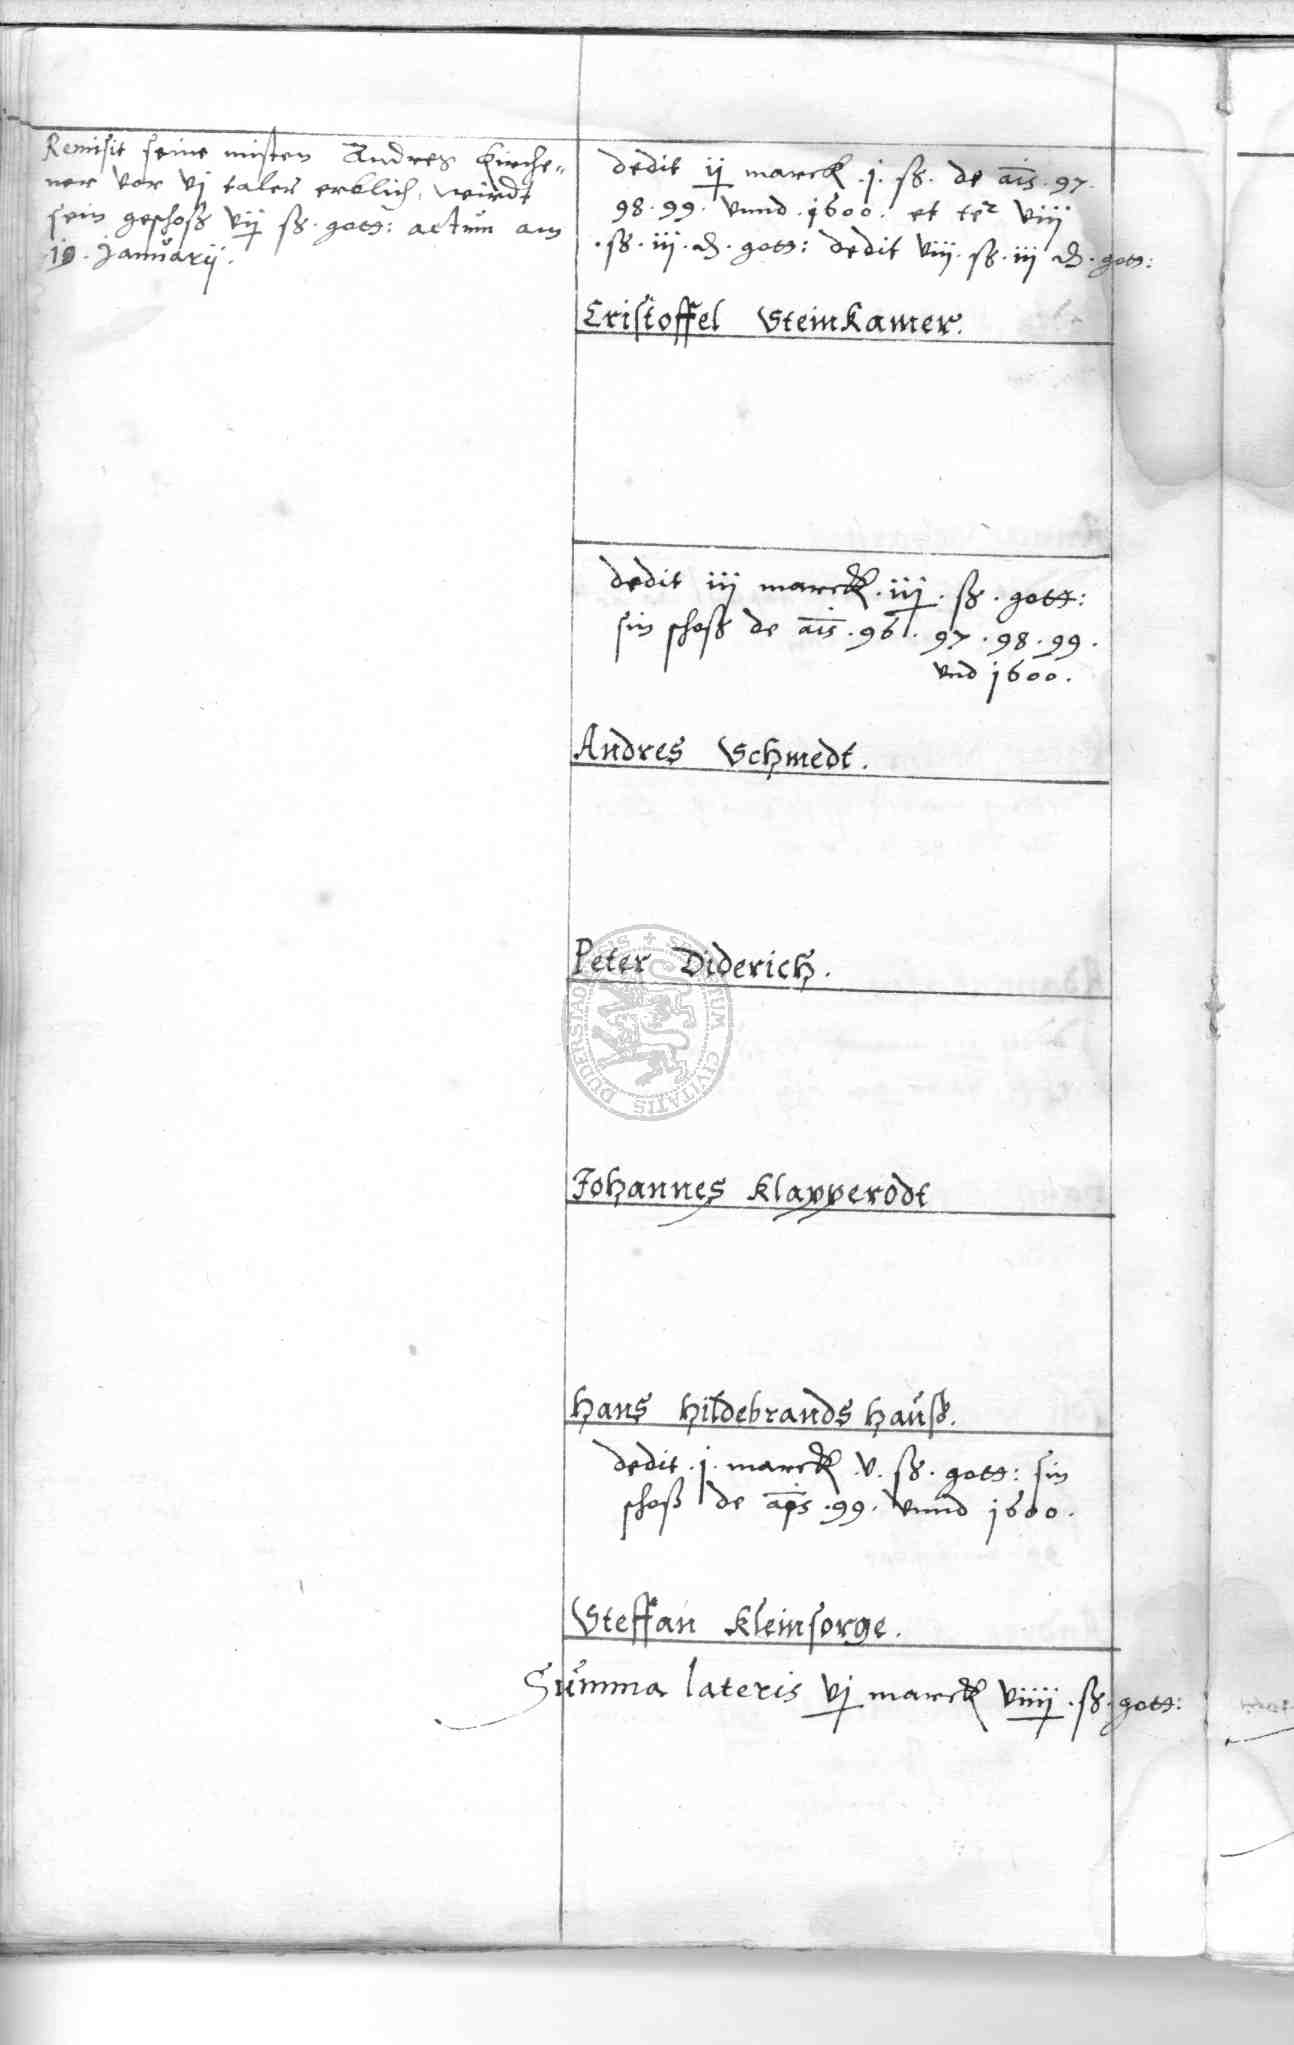 Remisit seine misten Andres Kirche=
ner vor vj taler erblich, wirdt
sein geschoß vij ß. gott: actum am
19. Januarij.
dedit ij marck .j. ß. de ais .97.
98. 99. vnnd .1600. et ter viij
.ß. iij .₰. gott: dedit viij. ß. iij ₰. gott:
Cristoffel Steinkamer.
dedit iij marck .iij. ß. gott:
sin schoß de ais .96. 97. 98. 99.
vnd 1600.
Andres Schmedt.
Peter Diderich.
SIGILLUM SECRETUM CIVITATIS DUDERSTADENSIS
Johannes Klapperodt
Hans Hildebrands hauß.
dedit .j. marck .v. ß. gott: sin
schoß de ais .99. vnnd 1600.
Steffan Kleinsorge.
Summa lateris vj marck viiij .ß. gott: